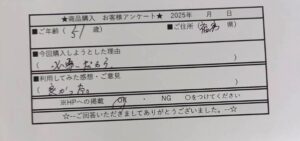 ★商品購入 お客様アンケート★ 2025年 月 日
■ご年齢( 51 歳) ■ご住所(福島 県)
■今回購入しようとした理由
( 必要だから )
■利用してみた感想・ご意見
( 良かった。 )
※HPへの掲載 OK ・ NG ○をつけてください
--☆--ご回答いただきましてありがとうございました。--☆--